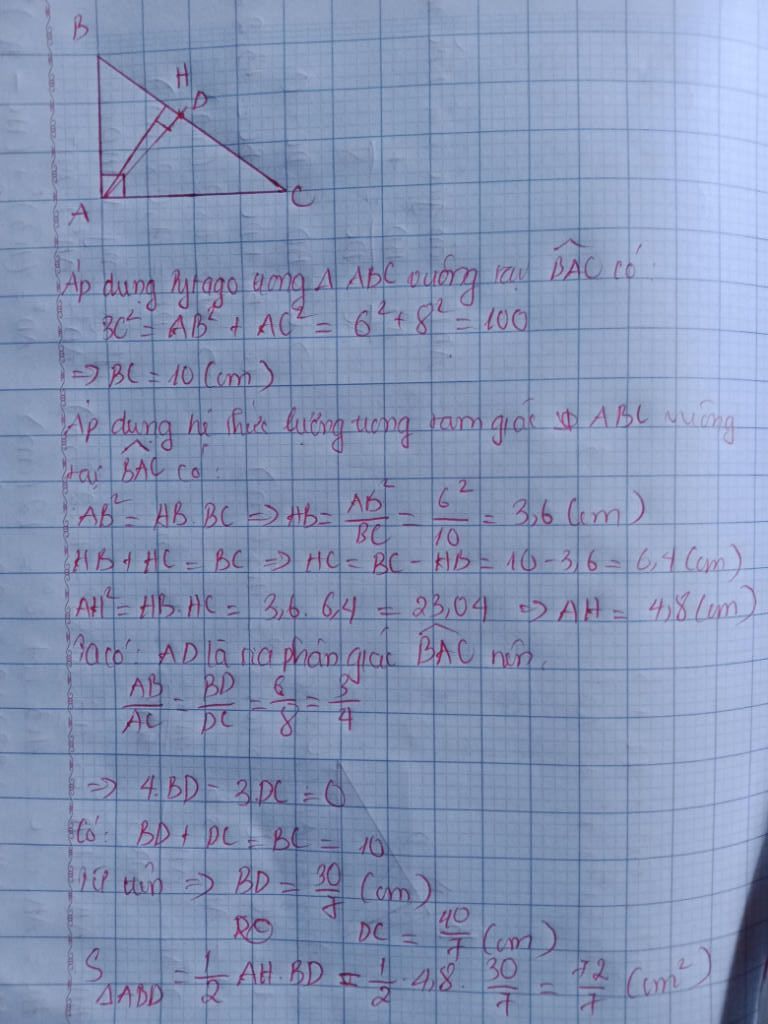 B
H
D
A
C
Áp dụng Pytago trong Δ ABC vuông tại \widehat{BAC} có:
BC² = AB² + AC² = 6² + 8² = 100
=> BC = 10 (cm)
Áp dụng hệ thức lượng trong tam giác ABC vuông
tại \widehat{BAC} có:
AB² = HB.BC => HB = AB²/BC = 6²/10 = 3,6 (cm)
HB + HC = BC => HC = BC - HB = 10 - 3,6 = 6,4 (cm)
AH² = HB.HC = 3,6. 6,4 = 23,04 => AH = 4,8 (cm)
Ta có: AD là tia phân giác \widehat{BAC} nên.
AB/AC = BD/DC = 6/8 = 3/4
=> 4.BD - 3.DC = 0
Có: BD + DC = BC = 10
Từ trên => BD = 30/7 (cm)
DC = 40/7 (cm)
S ΔABD = 1/2 AH.BD = 1/2 . 4,8 . 30/7 = 72/7 (cm²)